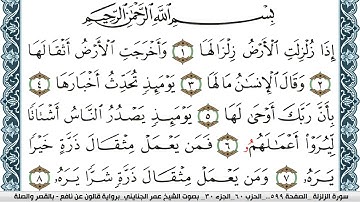 بِسْمِ اللَّهِ الرَّحْمَٰنِ الرَّحِيمِ
إِذَا زُلْزِلَتِ الْأَرْضُ زِلْزَالَهَا ١ وَأَخْرَجَتِ الْأَرْضُ أَثْقَالَهَا
٢ وَقَالَ الْإِنسَٰنُ مَا لَهَا ٣ يَوْمَئِذٍ تُحَدِّثُ أَخْبَارَهَا ٤
بِأَنَّ رَبَّكَ أَوْحَىٰ لَهَا ٥ يَوْمَئِذٍ يَصْدُرُ النَّاسُ أَشْتَاتًا
لِّيُرَوْا أَعْمَٰلَهُمُۥ ٦ فَمَن يَعْمَلْ مِثْقَالَ ذَرَّةٍ خَيْرًا
يَرَهُۥ ٧ وَمَن يَعْمَلْ مِثْقَالَ ذَرَّةٍ شَرًّا يَرَهُۥ ٨
سورة الزلزلة . الصفحة ٥٩٩ .. الحزب ٦٠ الجزء ٣٠ . بصوت الشيخ عمر الجنايني . برواية قالون عن نافع - بالقصر والصلة